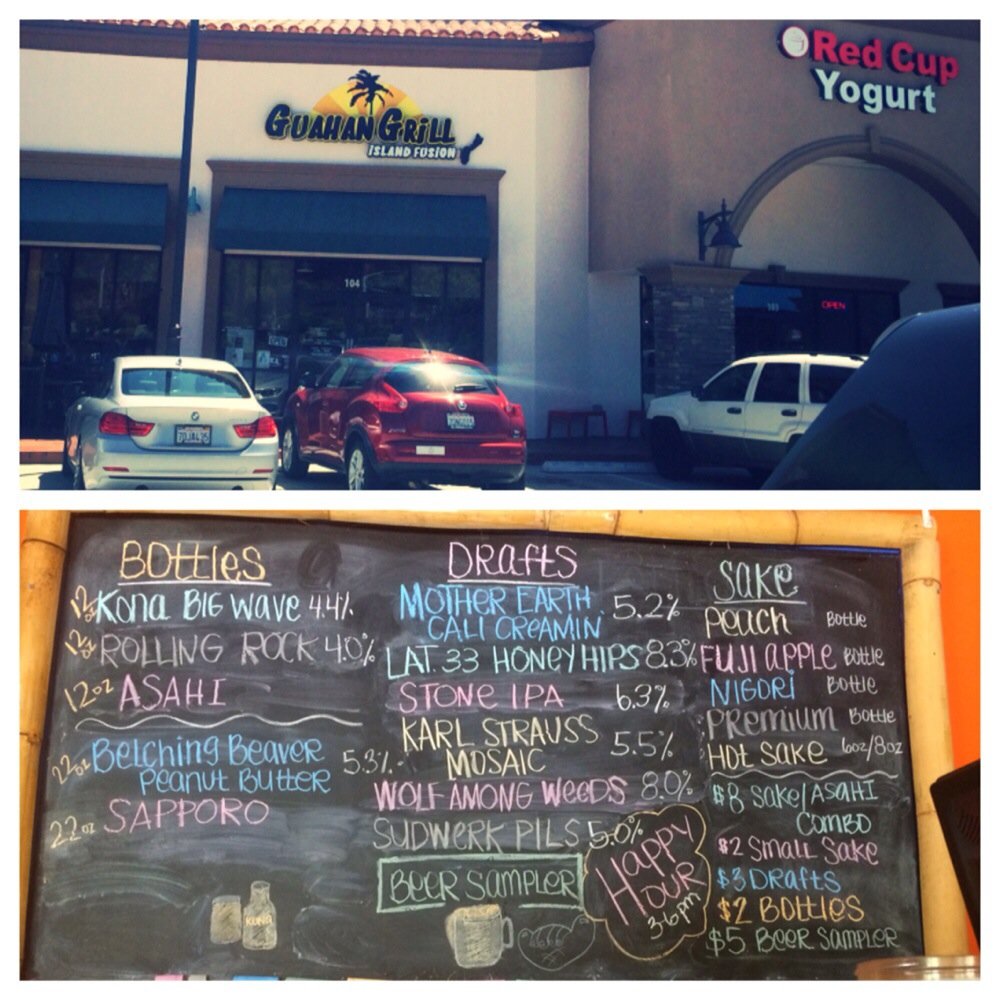 GUAHAN GRILL
ISLAND FUSION
Red Cup
Yogurt
104
105
OPEN
BOttles
12oz Kona BIG wave 4.4%
12oz ROLLING ROCK 4.0%
12oz ASAHI
22oz Belching Beaver
Peanut Butter 5.3%
22oz SAPPORO
KONA
DRAftS
MOTHER EARTH
CALI CREAMIN 5.2%
LAT. 33 HONEY HIPS 8.3%
STONE IPA 6.3%
KARL STRAUSS
MOSAIC 5.5%
WOLF AMONG WEEDS 8.0%
SUDWERK PILS 5.0%
BEER SAMPLER
HAPPY
HOUR
3-6pm
SAKE
PEACH Bottle
FUJI APPLE Bottle
NIGORI Bottle
PREMIUM Bottle
HOT SAKE 6oz/8oz
$8 SAKE/ASAHI
COMBO
$2 SMALL SAKE
$3 DRAFTS
$2 BOTTLES
$5 BEER SAMPLER